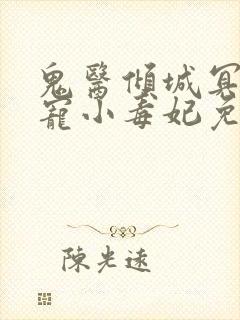 鬼醫傾城冥
寵小毒妃免
陳光遠